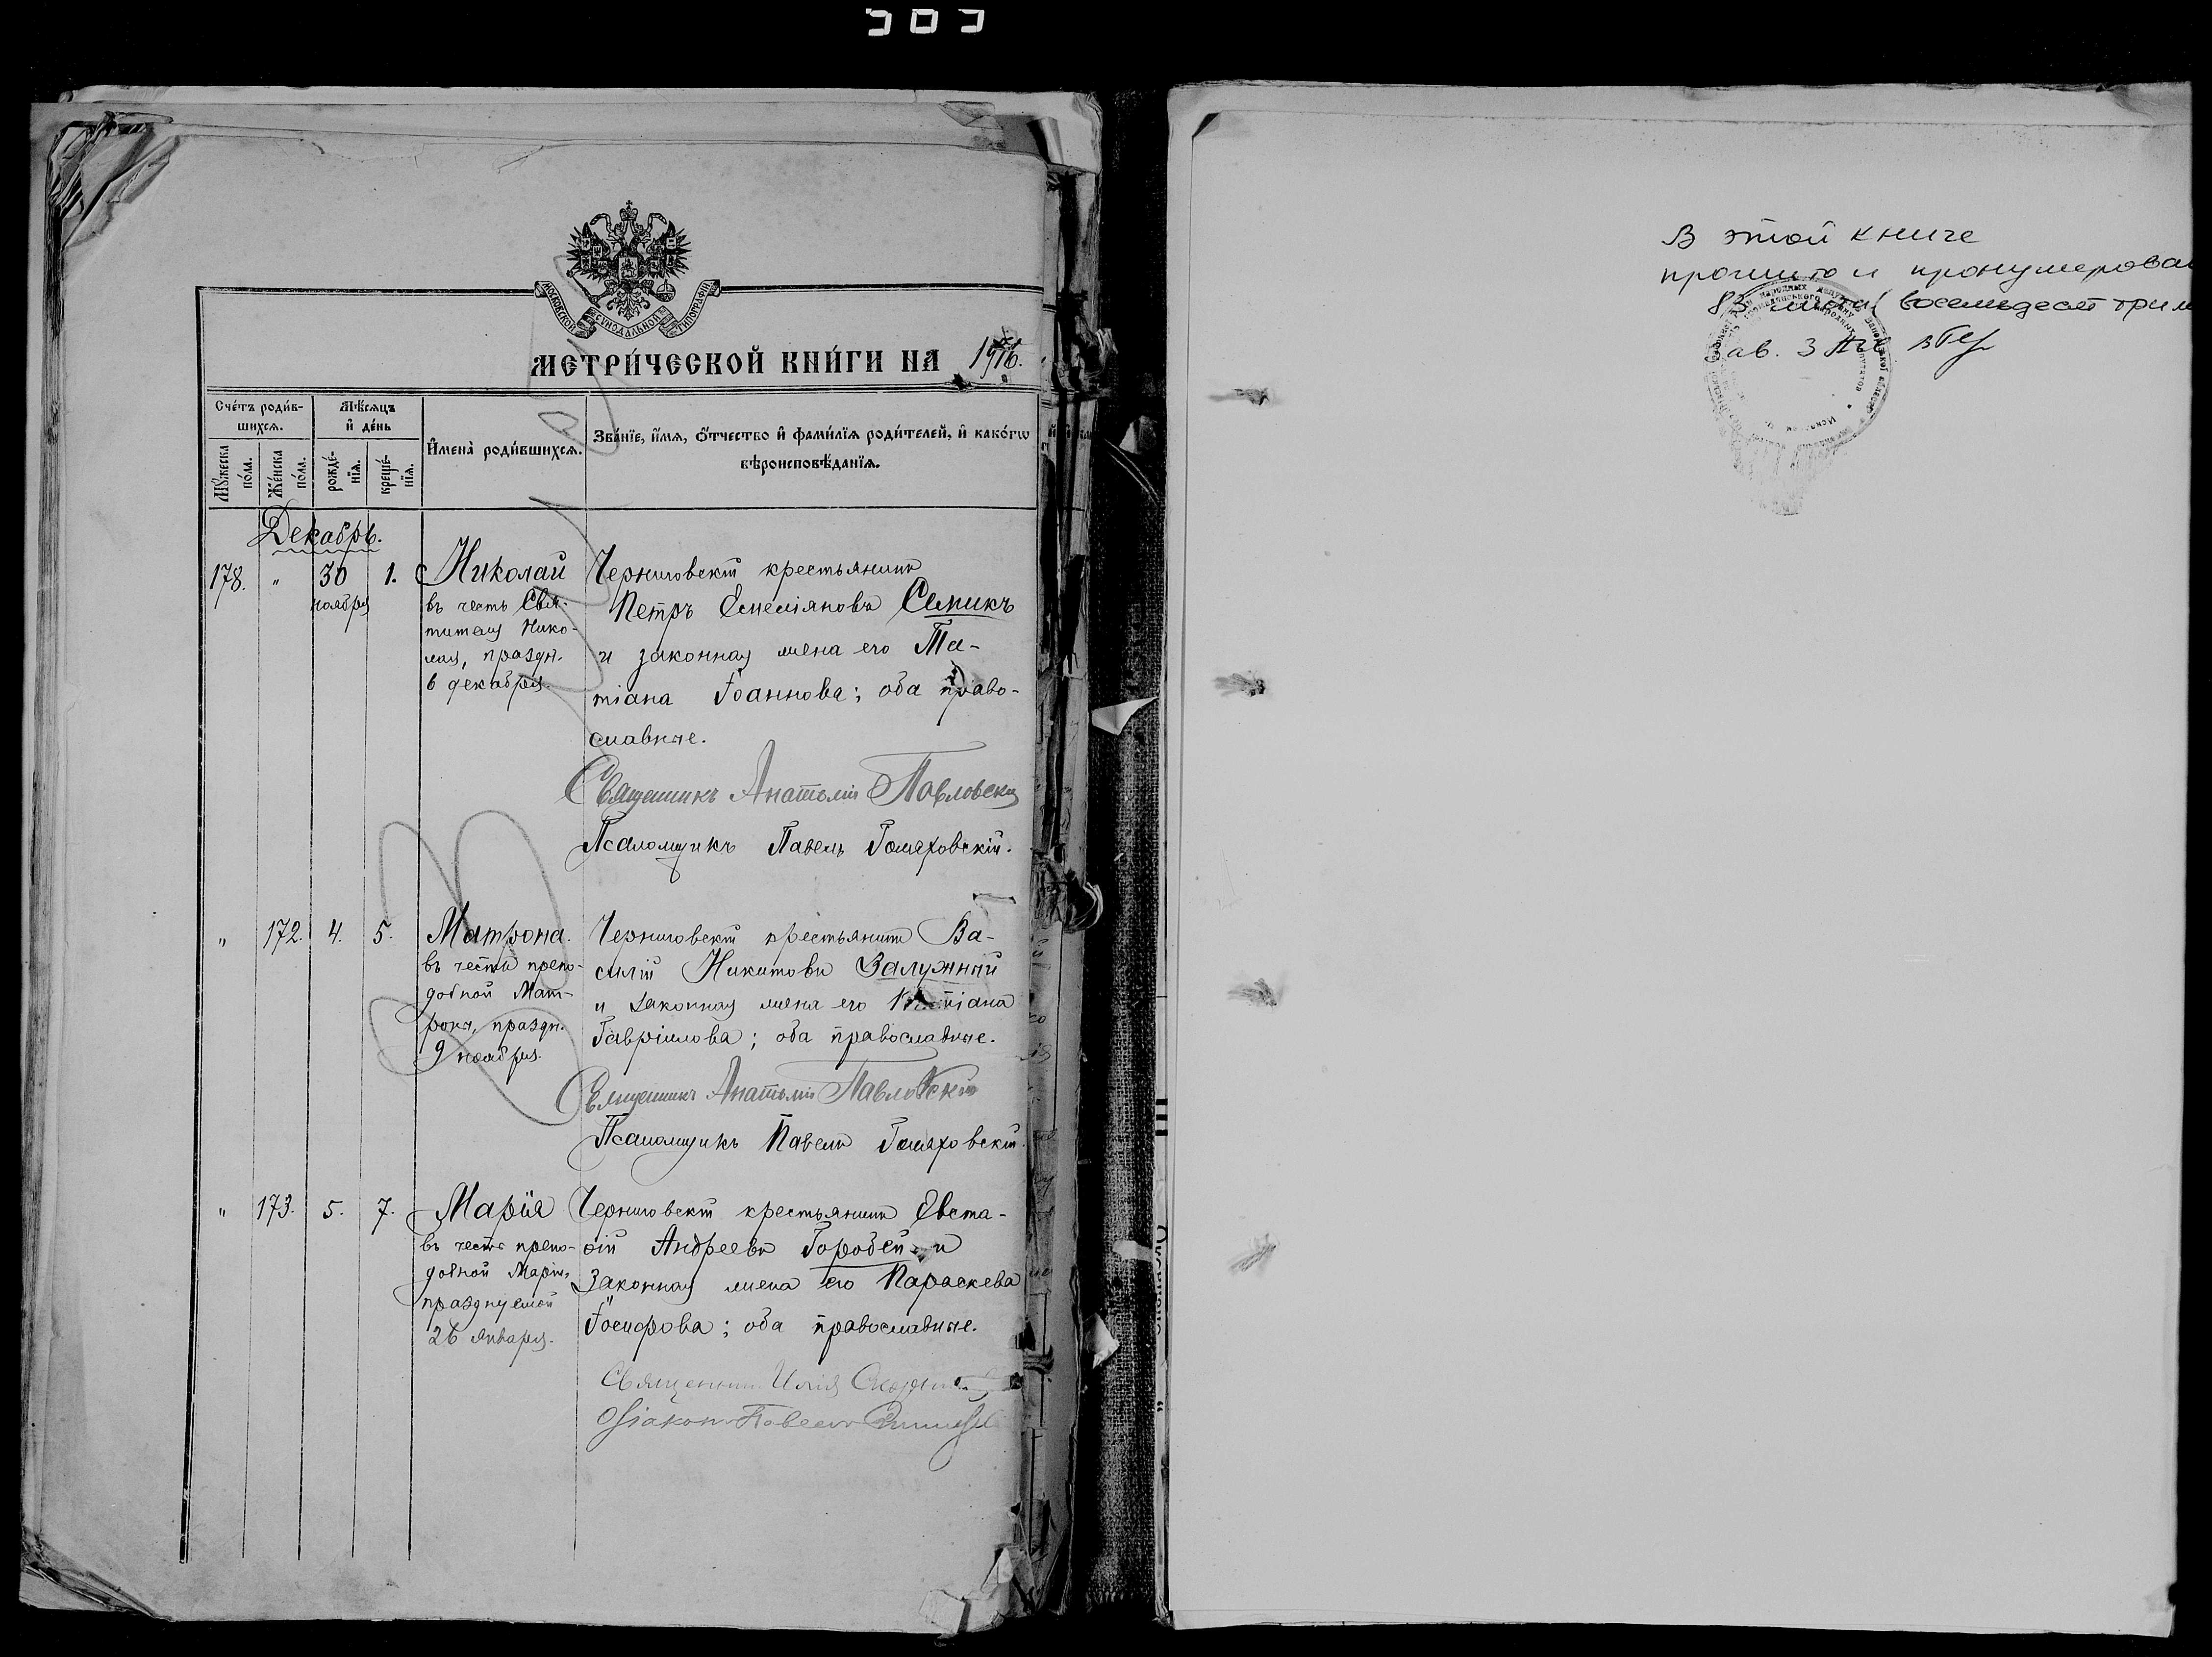 МОСКОВСКОЙ СѴНОДАЛЬНОЙ ТИПОГРАФІИ
МЕТРИ́ЧЕСКОЙ КНИ́ГИ НА 1916.
Сче́тъ роди́вшихсѧ.
Мꙋ́жеска по́ла.
Же́нска по́ла.
Мѣ́сѧцъ и҆ де́нь
рожде́нїѧ.
креще́нїѧ.
И҆мена̀ роди́вшихсѧ.
Зва́нїе, и҆́мѧ, ѻ҆́тчество и҆ фами́лїѧ роди́телей, и҆ како́гѡ
вѣроисповѣ́данїѧ.
Декабрь.
178. " 30 ноября 1.
Николай
въ честь Свя-
тителя Нико-
лая, праздн.
6 декабря.
Черниговскій крестьянинъ
Петръ Емеліяновъ Семикъ
и законная жена его Та-
тіана Іоаннова; оба право-
славные.
Священникъ Анатолій Павловскій
Псаломщикъ Павелъ Гомяховскій.
" 172. 4. 5.
Матрона.
въ честь препо-
добной Мат-
роны, праздн.
9 ноября.
Черниговскій крестьянинъ Ва-
силій Никитовъ Залужный
и законная жена его
Гавріилова; оба православные.
Священникъ Анатолій Павловскій
Псаломщикъ Павелъ Гомяховскій
" 173. 5. 7.
Марія
въ честь препо-
добной Маріи,
празднуемой
26 января.
Черниговскій крестьянинъ Евста-
фій Андреевъ Горобей и
законная жена его Параскева
Іосифова; оба православные.
Священникъ Илія
Діаконъ Павелъ
В этой книге
прошито и пронумерован
83 листа (восемьдесят три